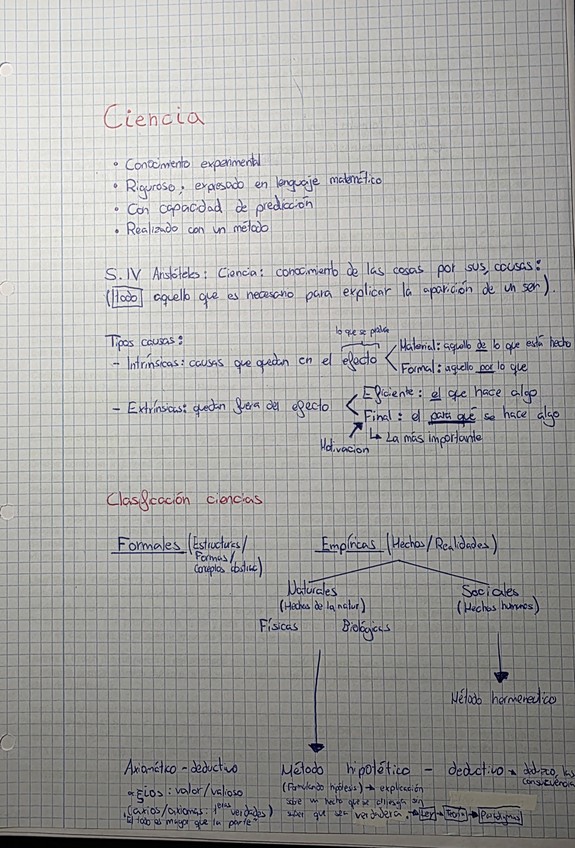 Ciencia
• Conocimiento experimental
• Riguroso, expresado en lenguaje matemático
• Con capacidad de predicción
• Realizado con un método
S.IV Aristóteles: Ciencia: conocimiento de las cosas por sus causas:
(Todo aquello que es necesario para explicar la aparición de un ser).
Tipos causas:
lo que se
- Intrínsicas: causas que quedan en el efecto
Material: aquello de lo que está hecho
Formal: aquello por lo que
- Extrínsicas: quedan fuera del efecto
Eficiente: el que hace algo
Final: el para qué se hace algo
La más importante
Motivacion
Clasificación ciencias
Formales (Estructuras/
Formas/
Conceptos abstrac)
Empíricas (Hechos/Realidades)
Naturales
(Hechos de la natur)
Sociales
(Hechos humanos)
Físicas Biológicas
Método hermeneútico
Axiomático-deductivo
Método hipotético - deductivo deduzco, las
consecuencias
Gios: valor/valioso
(axios/axiomas: 1eras verdades)
"El todo es mayor que la parte"
(Formulando hipótesis) → explicación
sobre un hecho que se
que sea verdadera. → Ley → Teoría → Paradigma